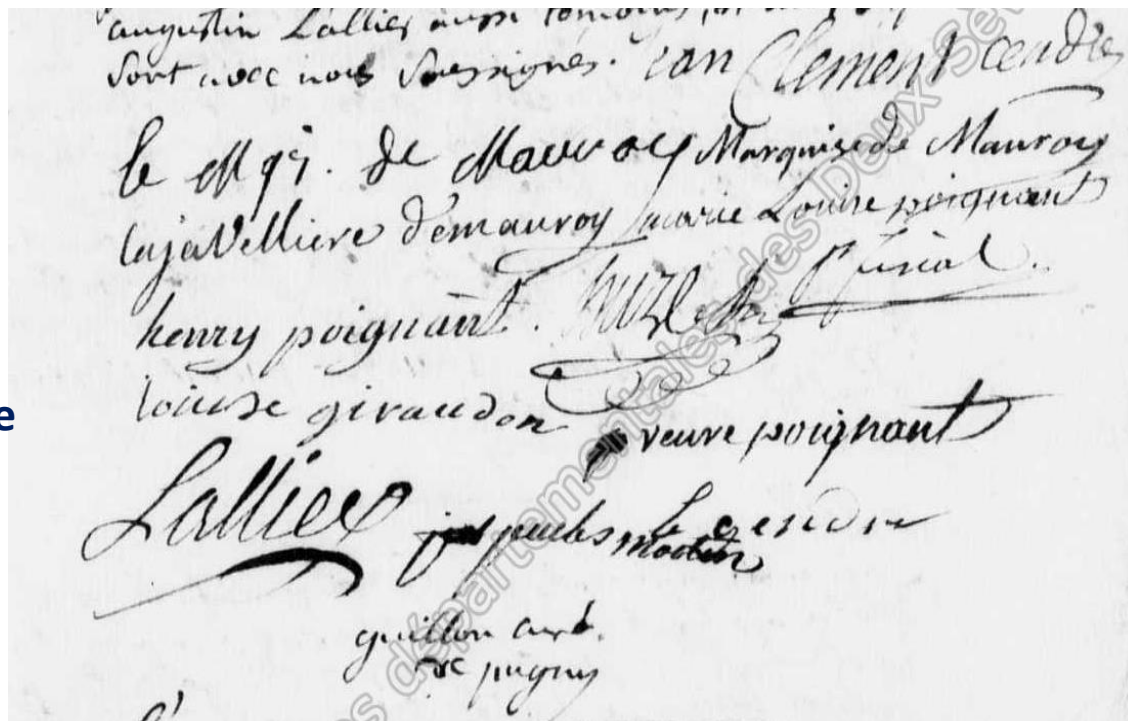 augustin Lallier aussi temoins
sont avec nous soussignes. ian Clement cendre
le Mqis. de Mauroy Marquise de Mauroy
lajaVelliere demauroy marie Louise poignant
henry poignant.
louise giraudon
veuve poignant
Lallier
jacques martin le gendre
guillon curé.
de pugny
e
Archives départementales des Deux-Sèvres